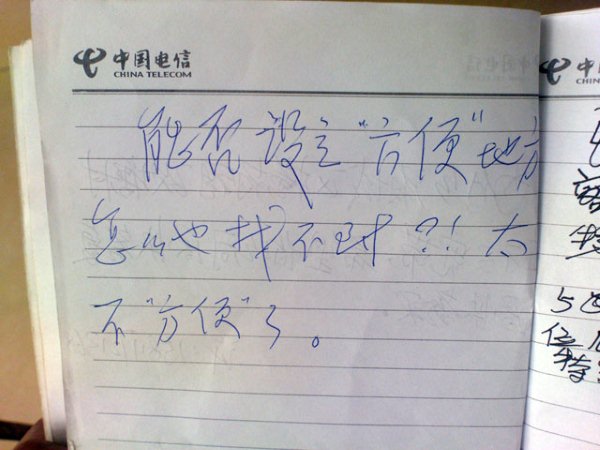 中国电信
CHINA TELECOM
能否设立"方便"地方
怎么也找不到?!太
不"方便"了。
中
CHI